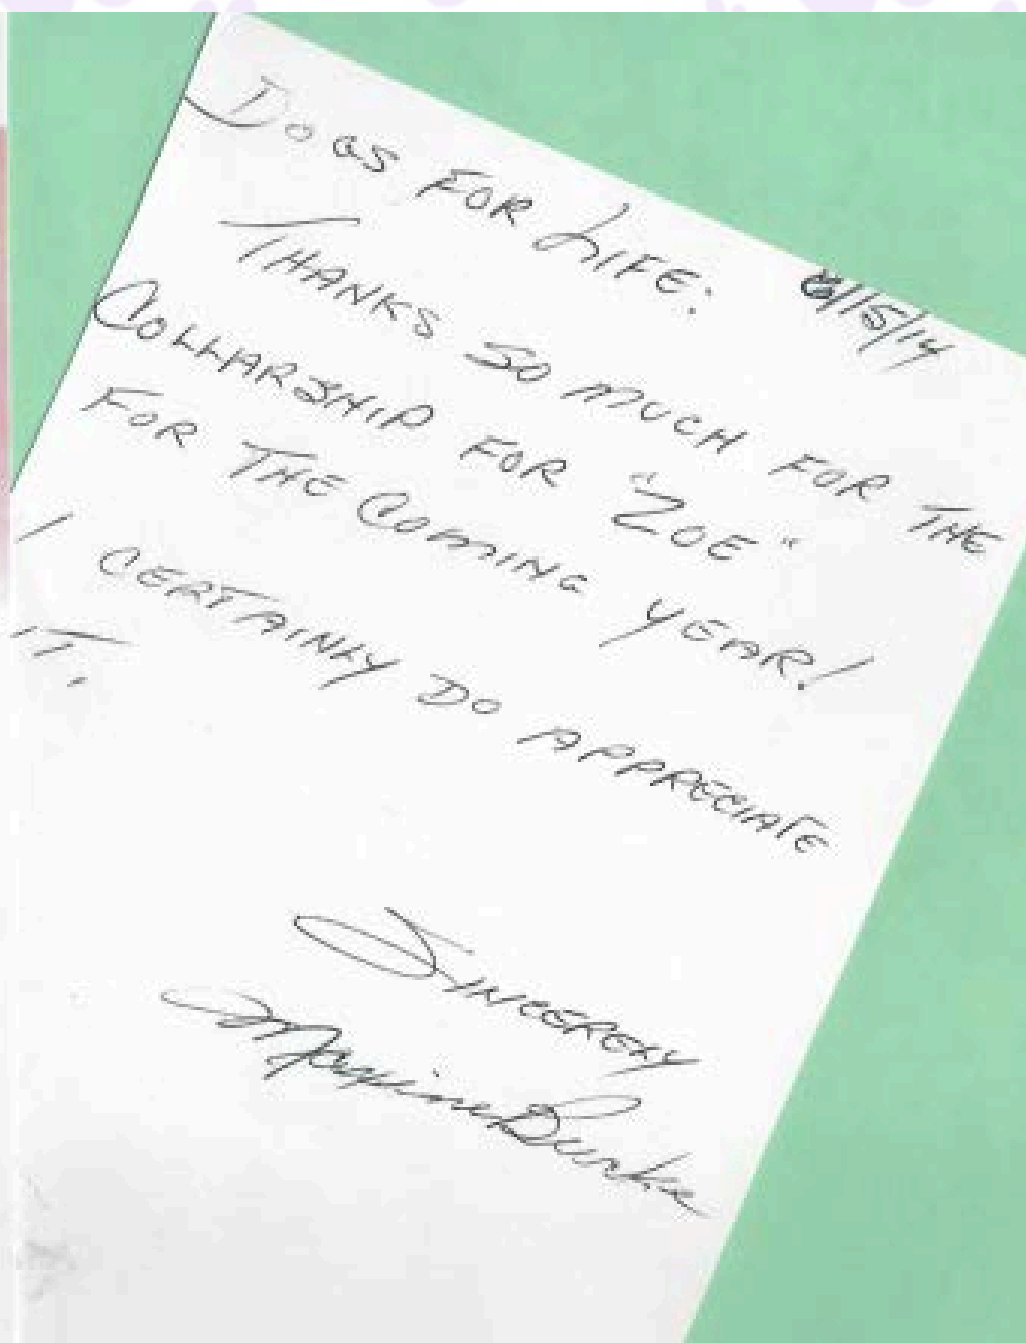 DOGS FOR LIFE:
/15/14
THANKS SO MUCH FOR THE
COLLARSHIP FOR "ZOE"
FOR THE COMING YEAR!
I CERTAINLY DO APPRECIATE
IT.
SINCERELY
Maxine Burke